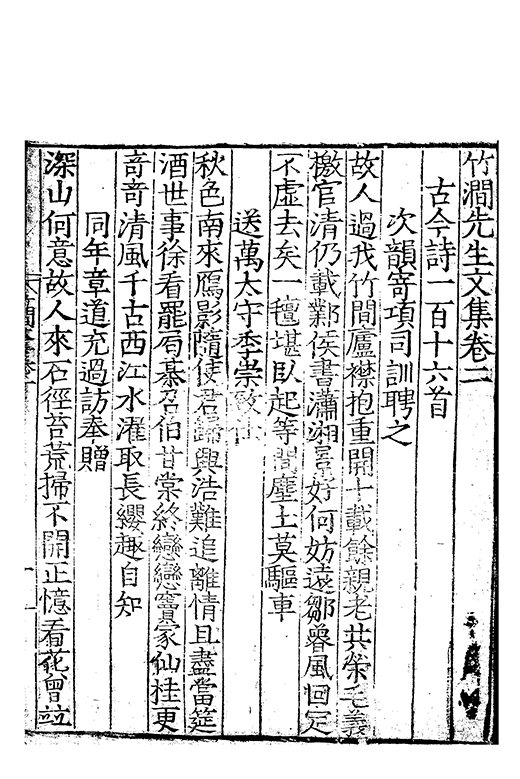 竹澗先生文集卷二
古今詩一百十六首
次韻寄項司訓聘之
故人過我竹間廬襟抱重開十載餘親老共榮毛義
檄官清仍載鄴侯書瀟湘景好何妨遠鄒魯風回定
不虛去矣一氊堪臥起等閒塵土莫驅車
送萬太守季崇致仕
秋色南來鴈影隨使君歸興浩難追離情且盡當筵
酒世事徐看罷局棊召伯甘棠終戀戀竇家仙桂更
竒竒清風千古西江水濯取長纓趣自知
同年章道充過訪奉贈
深山何意故人來石徑苔荒掃不開正憶看花曾並